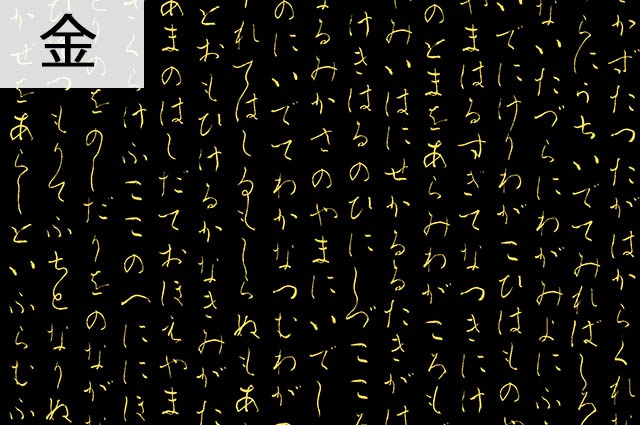 金
かずたつたがはからくれ
らにうちいでてみればしろ
ないたづらにわがみよにふ
いでにけりわがこひはもの
やまはるすぎてなつきにけ
のとまをあらみわがころも
みいはにせかるるたきがは
けきはるのひにしづここ
なるみかさのやまにいでし
のにいでてわかなつむわが
れてはしるもしらぬもあ
とおもひけるかなきみがた
あまのはしだておほえやま
くらけふここのへににほ
りのをのしだりをのなが
つもりてふちとなりぬ
かぜをあらしといふらむふ